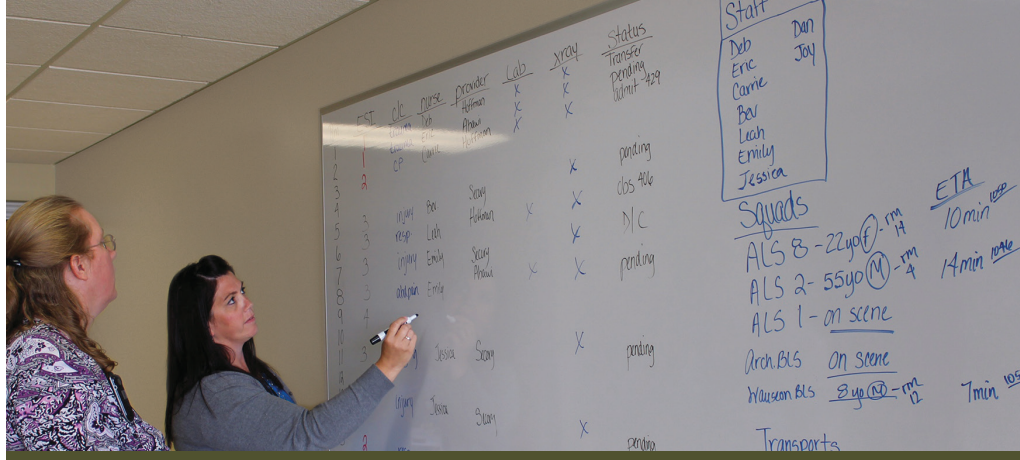 ESI c/c nurse provider Lab xray Status
Hoffman X X Transfer
X X pending
CP Carrie Hoffman X X admit-429
1
2 X pending
3 2
4 Secary X obs 406
5 3 injury Bev Hoffman X
6 3 resp Leah X D/C
7 3 injury Emily Secary
8 3 abd pain Emily X X pending
9 4
10
11 3 Jessica Secary X pending
injury Jessica Secary X
2 pending
Staff
Deb Dan
Eric Joy
Carrie
Bev
Leah
Emily
Jessica
Squads ETA
ALS 8 - 22yo F - rm 14 10min 1050
ALS 2 - 55yo M - rm 4 14min 1046
ALS 1 - on scene
Arch. BLS on scene
Wauseon BLS 8yo M - rm 12 7min
Transports